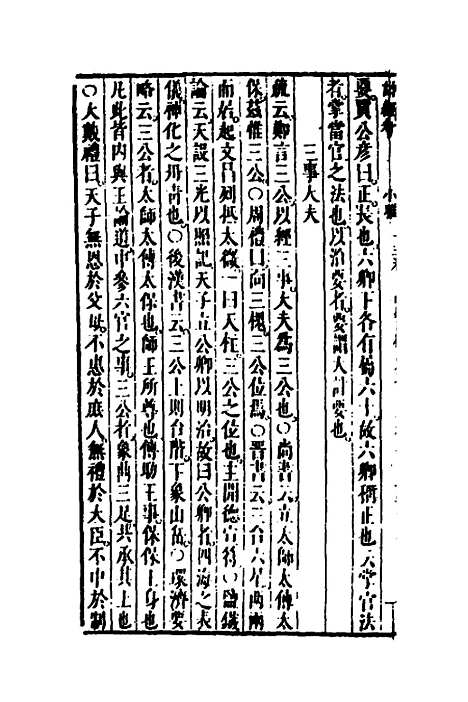 詩經考 小雅
要賈公彥曰正長也六卿下各有屬六十故六卿稱正也云掌官法
者掌當官之法也以治要者要謂大計要也
三事大夫
疏云鄭言三公以經三事大夫為三公也○尚書云立太師太傅太
保茲惟三公○周禮曰向三槐三公位焉○晉書云三台六星兩兩
而居起文昌列抵太微一曰天柱三公之位也主開德宣符○鹽鐵
論云天設三光以照記天子立公卿以明治故曰公卿者四海之表
儀神化之丹青也○後漢書云三公上則台階下象山岳○環濟要
略云三公者太師太傅太保也師王所尊也傅助王事保保王身也
凡此皆內與王論道中參六官之事三公者象鼎三足共承其上也
○大戴禮曰天子無恩於父母不惠於庶人無禮於大臣不中於制